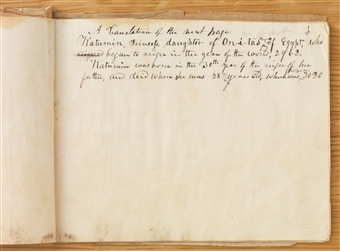 A Translation of the next page
Katumin, Princess, daughter of On-i-tas of Egypt, who
began to reign in the year of the world, 2962.
Katumin was born in the 30th year of the reign of her
father, and died when she was 28 years old, which was 3020